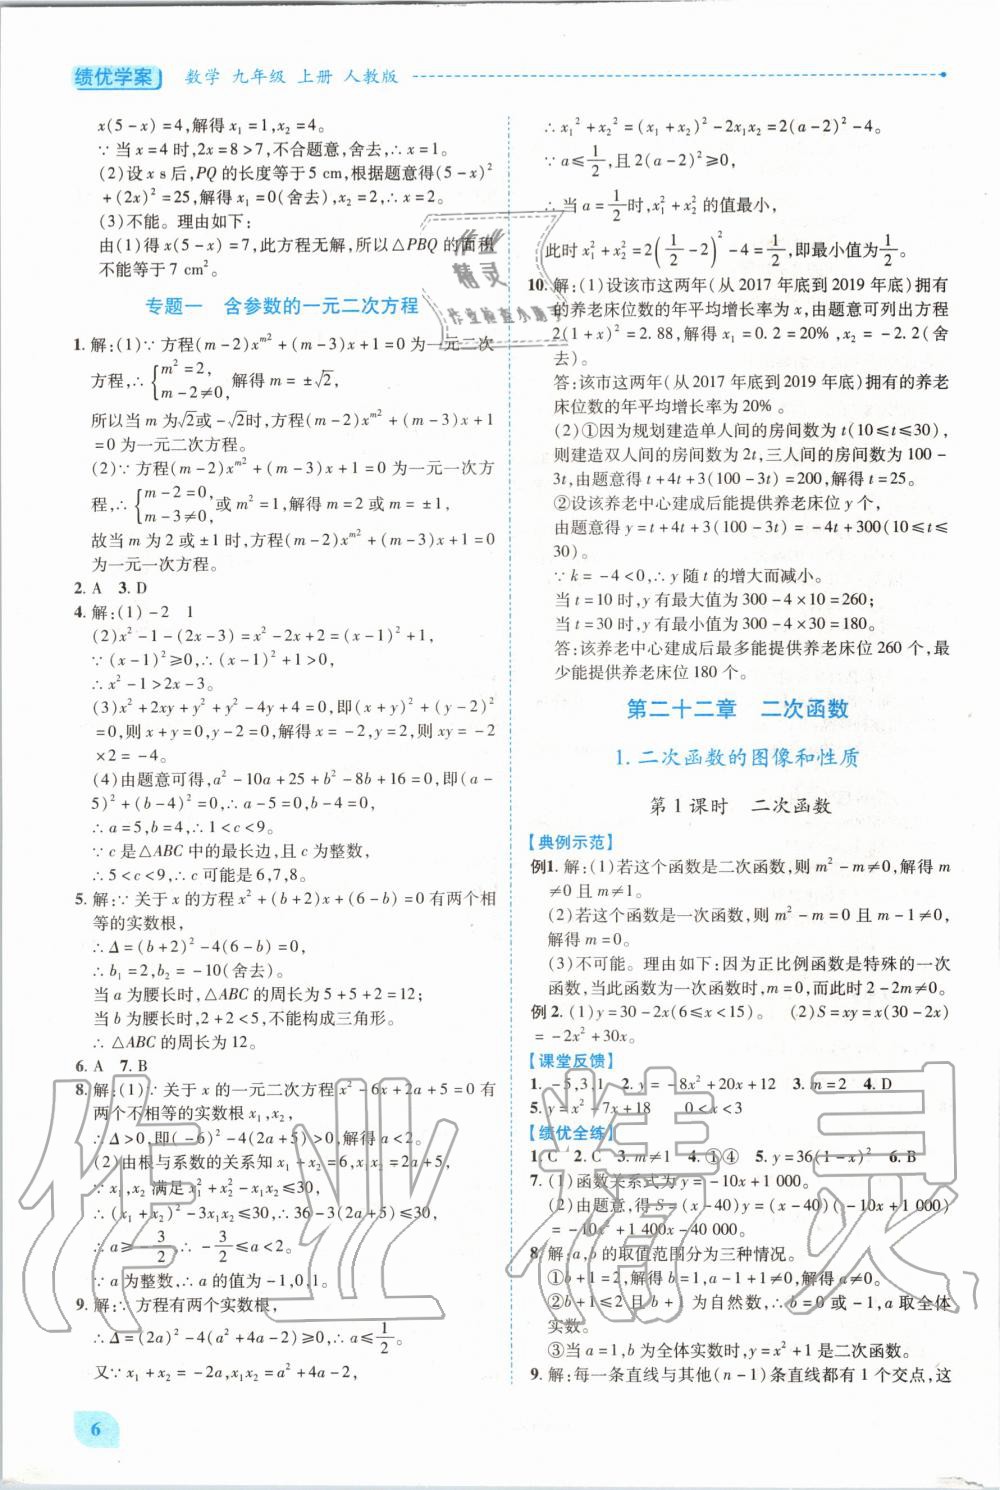 绩优学案 数学 九年级 上册 人教版
x(5-x)=4,解得 x₁=1,x₂=4。
∵当 x=4 时,2x=8>7,不合题意,舍去,∴x=1。
(2)设 x s 后,PQ 的长度等于 5 cm,根据题意得(5-x)²
+(2x)²=25,解得 x₁=0(舍去),x₂=2,∴x=2。
(3)不能。理由如下:
由(1)得 x(5-x)=7,此方程无解,所以△PBQ 的面积
不能等于 7 cm²。
专题一 含参数的一元二次方程
1. 解:(1)∵方程(m-2)x^{m²}+(m-3)x+1=0 为一元二次
方程,∴{m²=2, m-2≠0, 解得 m=±√2,
所以当 m 为√2或-√2时,方程(m-2)x^{m²}+(m-3)x+1
=0 为一元二次方程。
(2)∵方程(m-2)x^{m²}+(m-3)x+1=0 为一元一次方
程,∴{m-2=0, m-3≠0, 或 m²=1,解得 m=2 或 m=±1,
故当 m 为 2 或±1 时,方程(m-2)x^{m²}+(m-3)x+1=0
为一元一次方程。
2. A 3. D
4. 解:(1)-2 1
(2)x²-1-(2x-3)=x²-2x+2=(x-1)²+1,
∵(x-1)²≥0,∴(x-1)²+1>0,
∴x²-1>2x-3。
(3)x²+2xy+y²+y²-4y+4=0,即(x+y)²+(y-2)²
=0,则 x+y=0,y-2=0,解得 x=-2,y=2,则 xy=-2
×2=-4。
(4)由题意可得,a²-10a+25+b²-8b+16=0,即(a-
5)²+(b-4)²=0,∴a-5=0,b-4=0,
∴a=5,b=4,∴1<c<9。
∵c 是△ABC 中的最长边,且 c 为整数,
∴5<c<9,∴c 可能是 6,7,8。
5. 解:∵关于 x 的方程 x²+(b+2)x+(6-b)=0 有两个相
等的实数根,
∴Δ=(b+2)²-4(6-b)=0,
∴b₁=2,b₂=-10(舍去)。
当 a 为腰长时,△ABC 的周长为 5+5+2=12;
当 b 为腰长时,2+2<5,不能构成三角形。
∴△ABC 的周长为 12。
6. A 7. B
8. 解:(1)∵关于 x 的一元二次方程 x²-6x+2a+5=0 有
两个不相等的实数根 x₁,x₂,
∴Δ>0,即(-6)²-4(2a+5)>0,解得 a<2。
(2)由根与系数的关系知 x₁+x₂=6,x₁x₂=2a+5,
∵x₁,x₂ 满足 x₁²+x₂²-x₁x₂≤30,
∴(x₁+x₂)²-3x₁x₂≤30,∴36-3(2a+5)≤30,
∴a≥-3/2,∴-3/2≤a<2。
∵a 为整数,∴a 的值为-1,0,1。
9. 解:∵方程有两个实数根,
∴Δ=(2a)²-4(a²+4a-2)≥0,∴a≤1/2。
又∵x₁+x₂=-2a,x₁x₂=a²+4a-2,
∴x₁²+x₂²=(x₁+x₂)²-2x₁x₂=2(a-2)²-4。
∵a≤1/2,且 2(a-2)²≥0,
∴当 a=1/2时,x₁²+x₂² 的值最小,
此时 x₁²+x₂²=2(1/2-2)²-4=1/2,即最小值为1/2。
10. 解:(1)设该市这两年(从 2017 年底到 2019 年底)拥有
的养老床位数的年平均增长率为 x,由题意可列出方程
2(1+x)²=2.88,解得 x₁=0.2=20%,x₂=-2.2(舍
去)。
答:该市这两年(从 2017 年底到 2019 年底)拥有的养老
床位数的年平均增长率为 20%。
(2)①因为规划建造单人间的房间数为 t(10≤t≤30),
则建造双人间的房间数为 2t,三人间的房间数为 100-
3t,由题意得 t+4t+3(100-3t)=200,解得 t=25。
②设该养老中心建成后能提供养老床位 y 个,
由题意得 y=t+4t+3(100-3t)=-4t+300(10≤t≤
30)。
∵k=-4<0,∴y 随 t 的增大而减小。
当 t=10 时,y 有最大值为 300-4×10=260;
当 t=30 时,y 有最小值为 300-4×30=180。
答:该养老中心建成后最多能提供养老床位 260 个,最
少能提供养老床位 180 个。
第二十二章 二次函数
1. 二次函数的图像和性质
第 1 课时 二次函数
【典例示范】
例1. 解:(1)若这个函数是二次函数,则 m²-m≠0,解得 m
≠0 且 m≠1。
(2)若这个函数是一次函数,则 m²-m=0 且 m-1≠0,
解得 m=0。
(3)不可能。理由如下:因为正比例函数是特殊的一次
函数,当此函数为一次函数时,m=0,而此时 2-2m≠0。
例 2. (1)y=30-2x(6≤x<15)。 (2)S=xy=x(30-2x)
=-2x²+30x。
【课堂反馈】
1. -5,3,1 2. y=-8x²+20x+12 3. n=2 4. D
5. y=x²-7x+18 0<x<3
【绩优全练】
1. C 2. C 3. m≠1 4. ①④ 5. y=36(1-x)² 6. B
7. (1)函数关系式为 y=-10x+1 000。
(2)由题意,得 S=(x-40)y=(x-40)(-10x+1 000)
=-10x²+1 400x-40 000。
8. 解:a,b 的取值范围分为三种情况。
①b+1=2,解得 b=1,a-1+1≠0,解得 a≠0。
②b+1≤2 且 b+1 为自然数,∴b=0 或-1,a 取全体
实数。
③当 a=1,b 为全体实数时,y=x²+1 是二次函数。
9. 解:每一条直线与其他(n-1)条直线都有 1 个交点,这
6
作业精灵
作业检查小助手
作业精灵